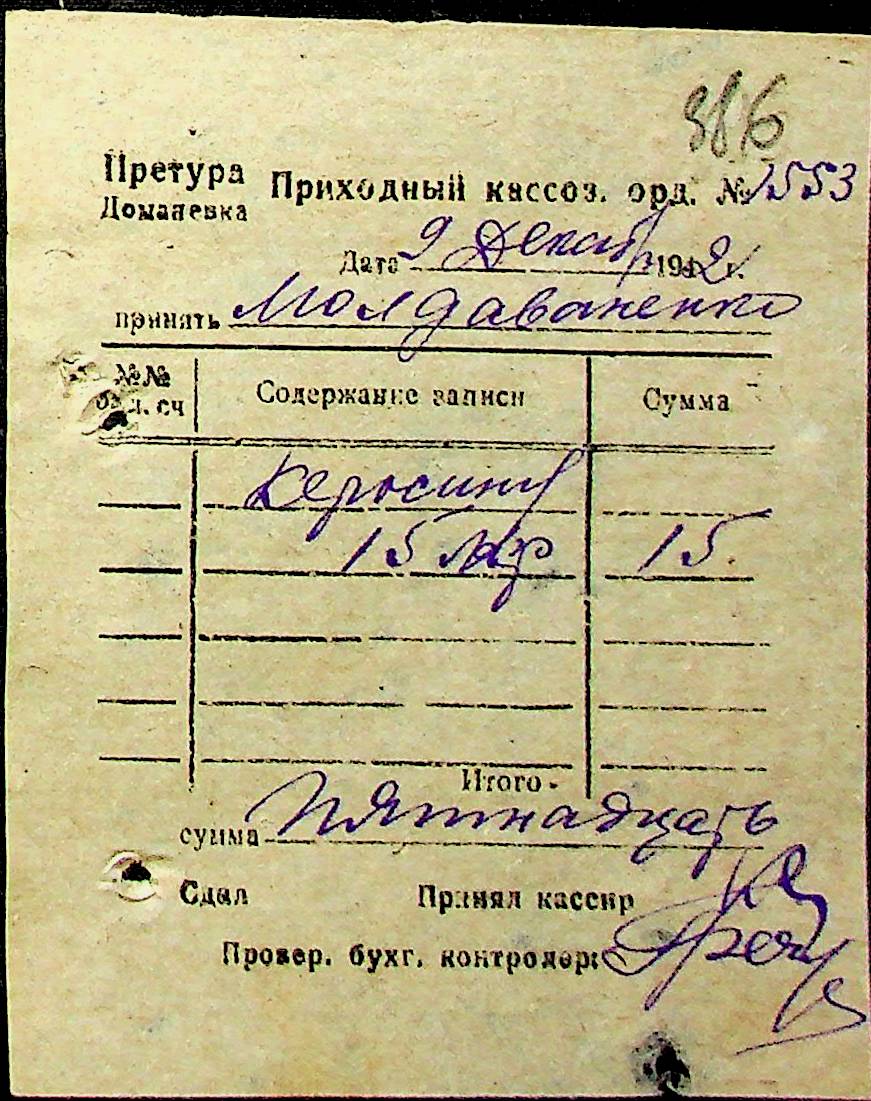 386
Претура Приходный кассов. орд. № 1553
Доманевка
Дата 9 Декабр 1942 г.
принять Молдаваненко
№№ Содержание записи Сумма
сч
Керосину
15 мар 15.
Итого
сумма Пятнадцать
Сдал Принял кассир
Провер. бухг. контролер: